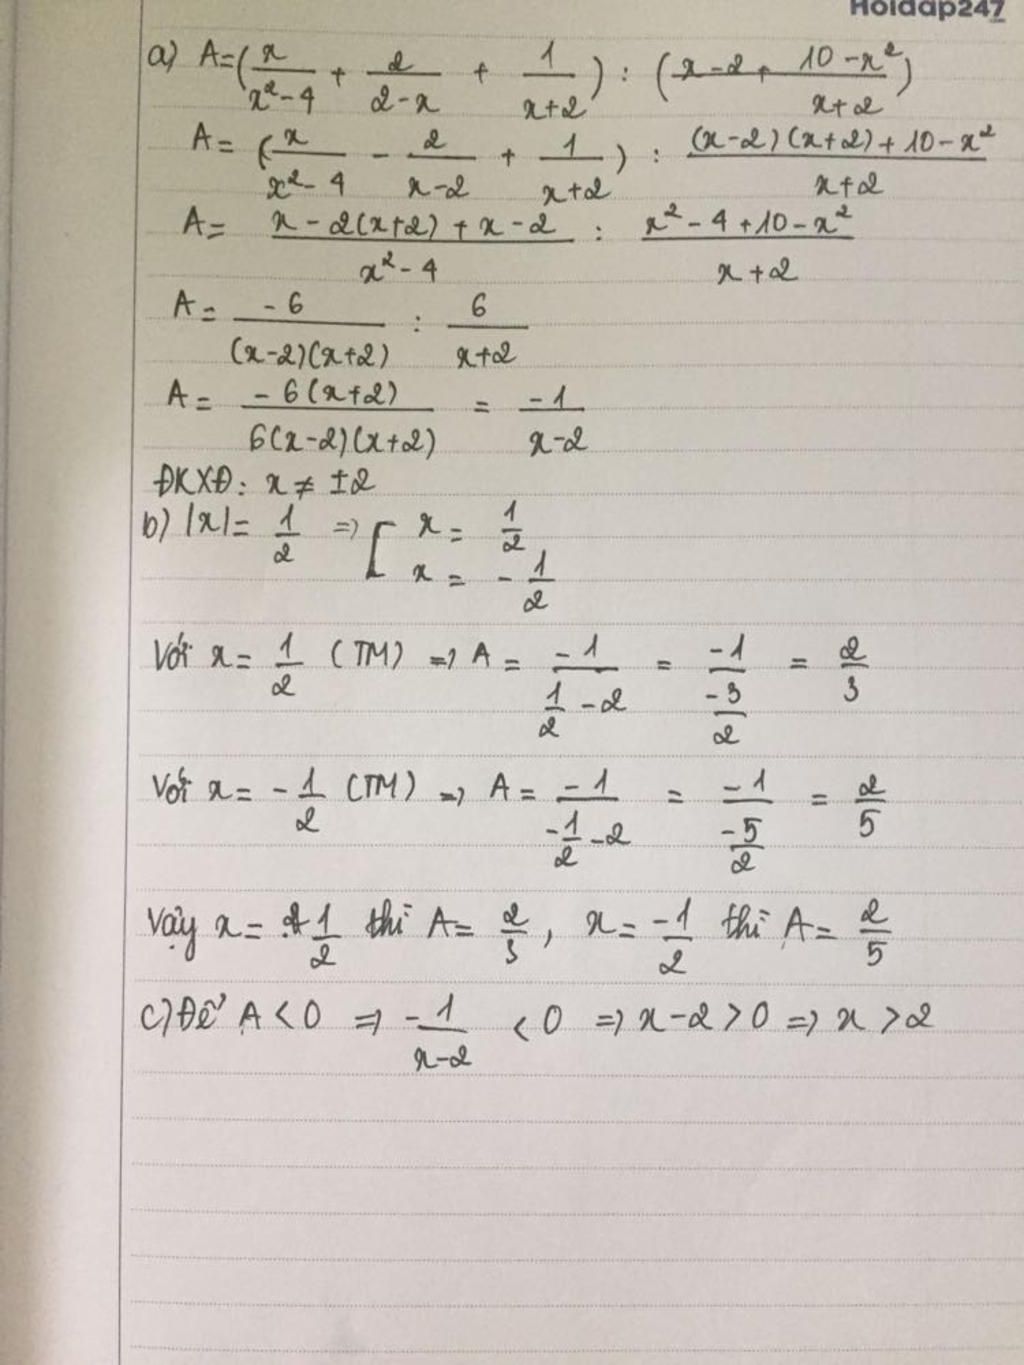 Hoidap247
a) A=(x/(x²-4) + 2/(2-x) + 1/(x+2)) : (x-2+ (10-x²)/(x+2))
A= (x/(x²-4) - 2/(x-2) + 1/(x+2)) : ((x-2)(x+2)+10-x²)/(x+2)
A= (x-2(x+2)+x-2)/(x²-4) : (x²-4+10-x²)/(x+2)
A= -6/((x-2)(x+2)) : 6/(x+2)
A= -6(x+2)/(6(x-2)(x+2)) = -1/(x-2)
ĐKXĐ: x ≠ ±2
b) |x|= 1/2 => [ x = 1/2, x = -1/2
Với x= 1/2 (TM) => A = -1/(1/2 -2) = -1/(-3/2) = 2/3
Với x= -1/2 (TM) => A = -1/(-1/2 -2) = -1/(-5/2) = 2/5
Vậy x= 1/2 thì A= 2/3, x= -1/2 thì A= 2/5
c) Để A<0 => -1/(x-2) <0 => x-2>0 => x>2